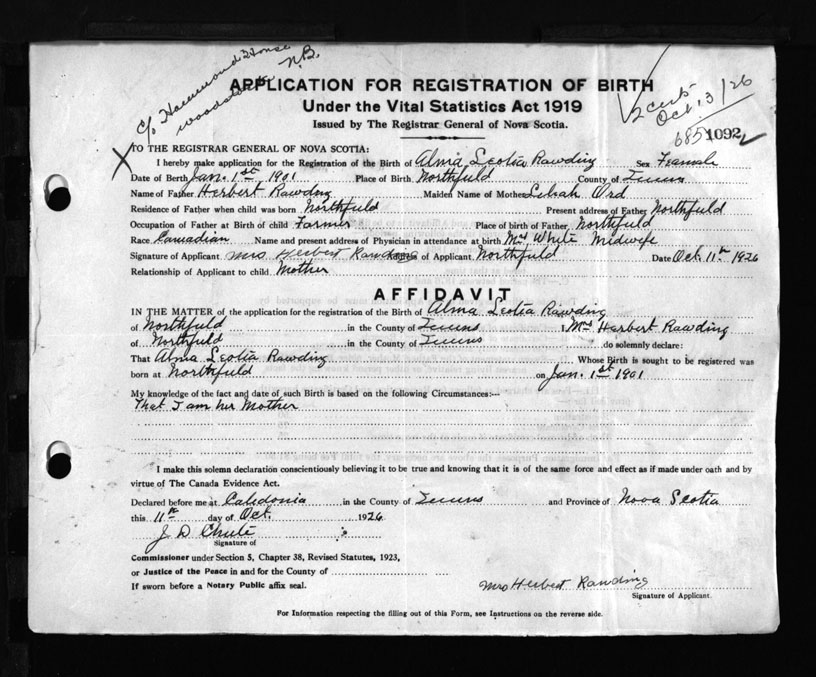 c/o Hammond House
Woodstock N.B.
2 certs
Oct 13/26
APPLICATION FOR REGISTRATION OF BIRTH
Under the Vital Statistics Act 1919
Issued by The Registrar General of Nova Scotia.
685 1092
X TO THE REGISTRAR GENERAL OF NOVA SCOTIA:
I hereby make application for the Registration of the Birth of Alma Leotia Rawding Sex Female
Date of Birth Jan. 1st 1901 Place of Birth Northfield County of Queens
Name of Father Herbert Rawding Maiden Name of Mother Ord
Residence of Father when child was born Northfield Present address of Father Northfield
Occupation of Father at Birth of child Farmer Place of birth of Father Northfield
Race Canadian Name and present address of Physician in attendance at birth Mrs White Midwife
Signature of Applicant Mrs Herbert Rawding of Applicant Northfield Date Oct. 11th 1926
Relationship of Applicant to child Mother
AFFIDAVIT
IN THE MATTER of the application for the registration of the Birth of Alma Leotia Rawding
of Northfield in the County of Queens I Mrs Herbert Rawding
of Northfield in the County of Queens do solemnly declare:
That Alma Leotia Rawding Whose Birth is sought to be registered was
born at Northfield on Jan. 1st 1901
My knowledge of the fact and date of such Birth is based on the following Circumstances:—
That I am her Mother
I make this solemn declaration conscientiously believing it to be true and knowing that it is of the same force and effect as if made under oath and by
virtue of The Canada Evidence Act.
Declared before me at Caledonia in the County of Queens and Province of Nova Scotia
this 11th day of Oct. 1926
J. D. Chute
Signature of
Commissioner under Section 5, Chapter 38, Revised Statutes, 1923,
or Justice of the Peace in and for the County of
If sworn before a Notary Public affix seal.
Mrs Herbert Rawding
Signature of Applicant.
For Information respecting the filling out of this Form, see Instructions on the reverse side.